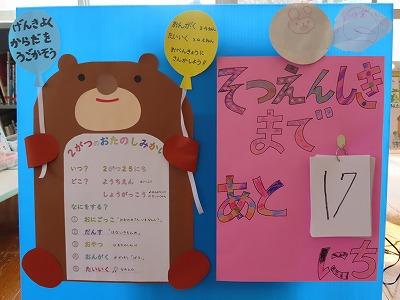 げんきよく
からだを
うごかそう
おんがく
たいいく
おべんきょうに
さんかしよう!
2がつのおたのしみかい
いつ? 2がつ25にち
どこ? ようちえん
しょうがっこう
なにをする?
① おにごっこ
② だんす
③ おやつ
④ おんがく
⑤ たいいく
そつえんしき
まで
あと
17
にち